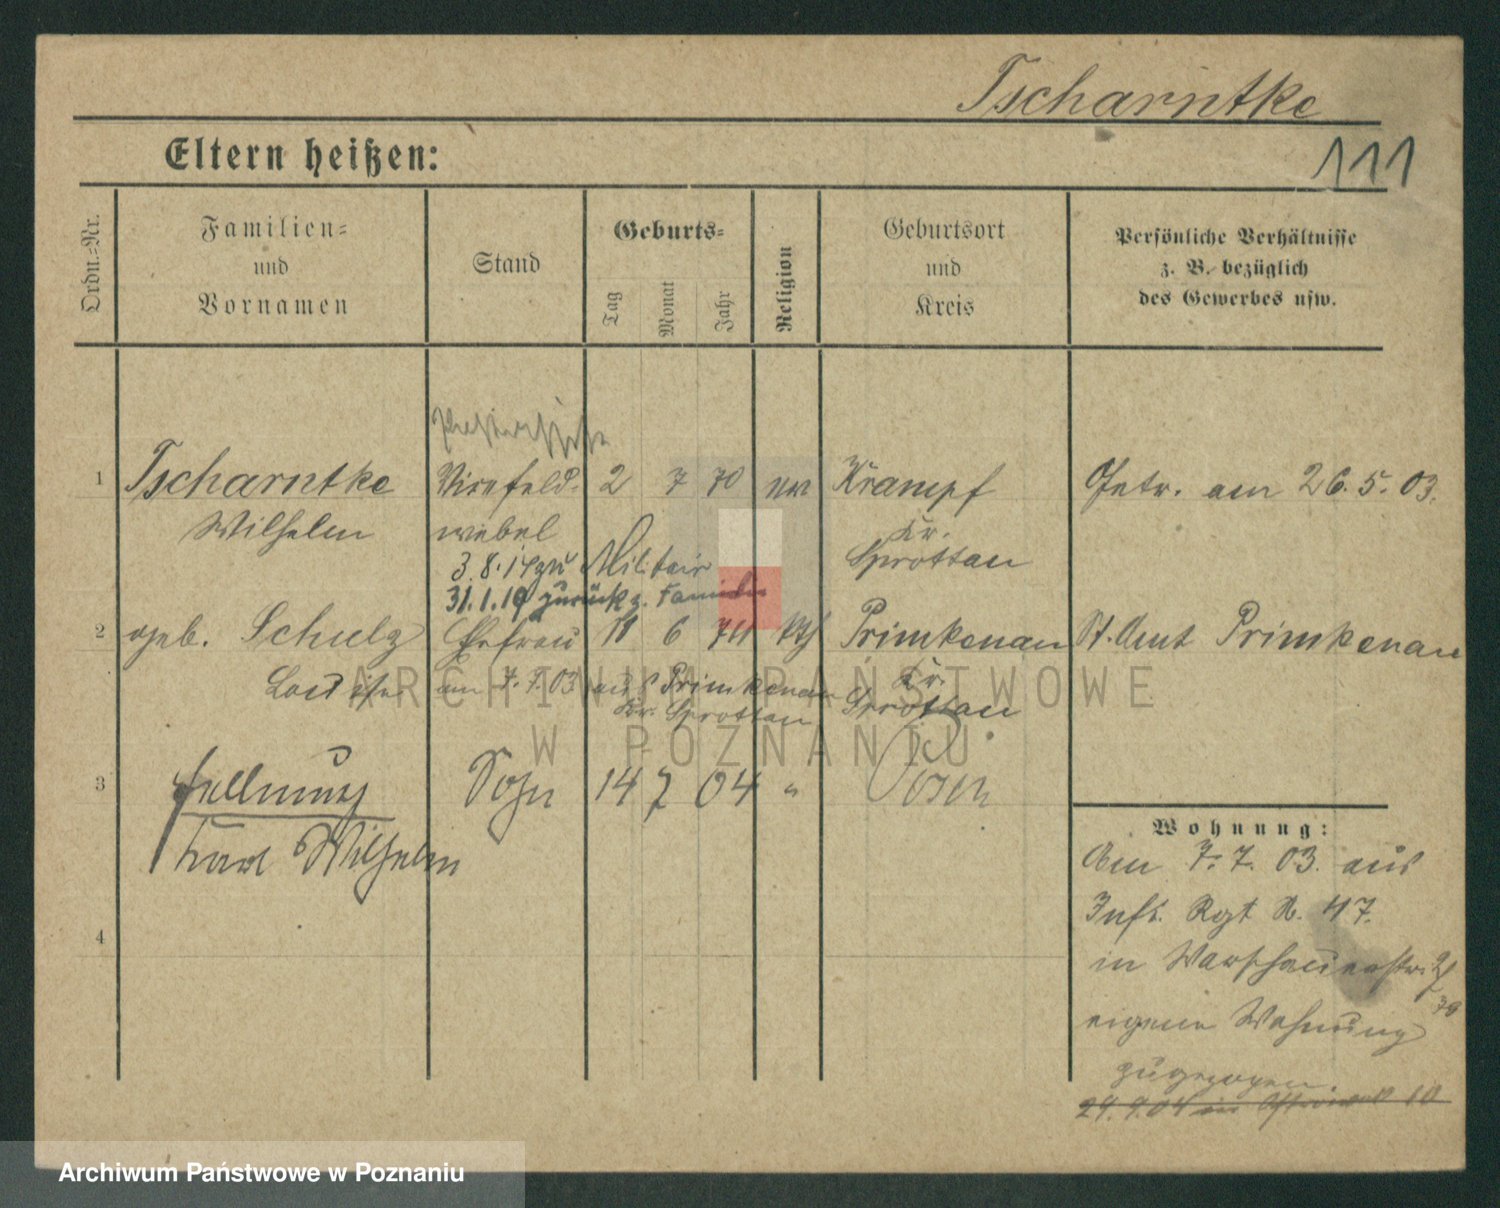 Tscharntke
Eltern heißen:
111
Ordn.-Nr.
Familien-
und
Vornamen
Stand
Geburts-
Tag
Monat
Jahr
Religion
Geburtsort
und
Kreis
Persönliche Verhältnisse
z. B. bezüglich
des Gewerbes usw.
1 Tscharntke Vizefeld- 2 7 70 ev Krampf Getr. am 26. 5. 03.
Wilhelm webel Kr.
Sprottau
3. 8. 14 zu Militair
31.1.19 zurück z. Familie
2 geb. Schulz Ehefrau 11 6 71 kth Primkenau St. Amt Primkenau
Louise am 7. 7. 03 aus Primkenau Kr.
Kr. Sprottau Sprottau
3 Sohn 14 7 04 " Posen
Karl Wilhelm
4
Wohnung:
Am 7. 7. 03. aus
Inft. Rgt N. 47.
in Warschauerstr.
eigene Wohnung
zugezogen.
24. 9. 04 in 10
ARCHIWUM PAŃSTWOWE
W POZNANIU
Archiwum Państwowe w Poznaniu